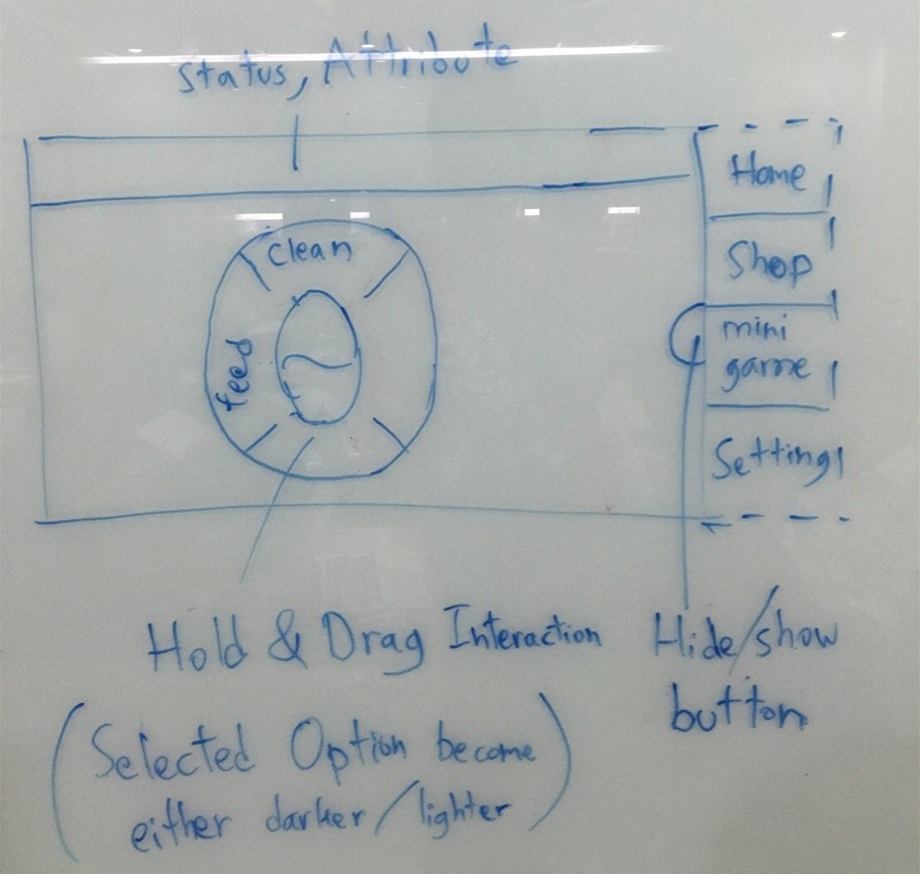 Status, Attribute
Home
Shop
mini
game
Setting
clean
feed
Hold & Drag Interaction
(Selected Option become
either darker/lighter)
Hide/show
button